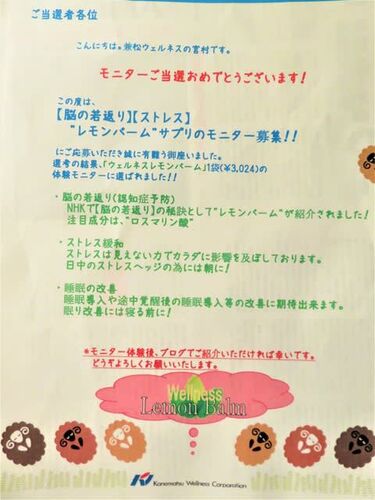 ご当選者各位
こんにちは。兼松ウェルネスの宮村です。
モニターご当選おめでとうございます!
この度は、
【脳の若返り】【ストレス】
"レモンバーム"サプリのモニター募集!!
にご応募いただき誠に有難う御座いました。
選考の結果、「ウェルネスレモンバーム」1袋(¥3,024)の
体験モニターに選ばれました!!
・脳の若返り(認知症予防)
NHKで【脳の若返り】の秘訣として"レモンバーム"が紹介されました!
注目成分は、"ロスマリン酸"
・ストレス緩和
ストレスは見えない力でカラダに影響を及ぼしております。
日中のストレスヘッジの為には朝に!
・睡眠の改善
睡眠導入や途中覚醒後の睡眠導入等の改善に期待出来ます。
眠り改善には寝る前に!
*モニター体験後、ブログでご紹介いただければ幸いです。
どうぞよろしくお願いいたします。
Wellness
Lemon Balm
Kanematsu Wellness Corporation